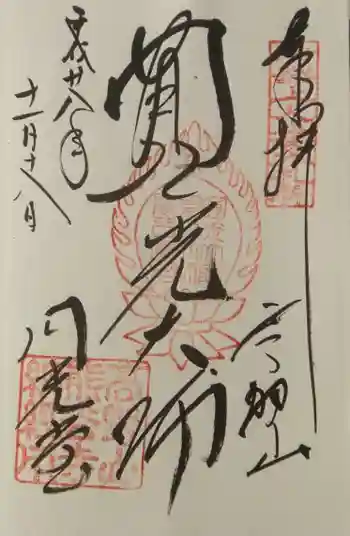 奉拝
音羽山
圓光大師
円光堂
平成廿八年
十一月十八日